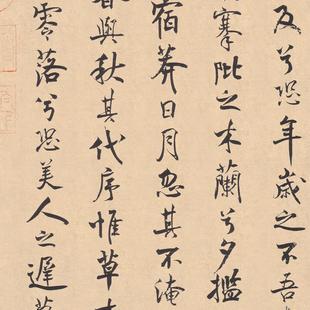 及兮恐年歲之不吾
搴阰之木蘭兮夕搵
宿莽日月忽其不淹
與秋其代序惟草
零落兮恐美人之遲